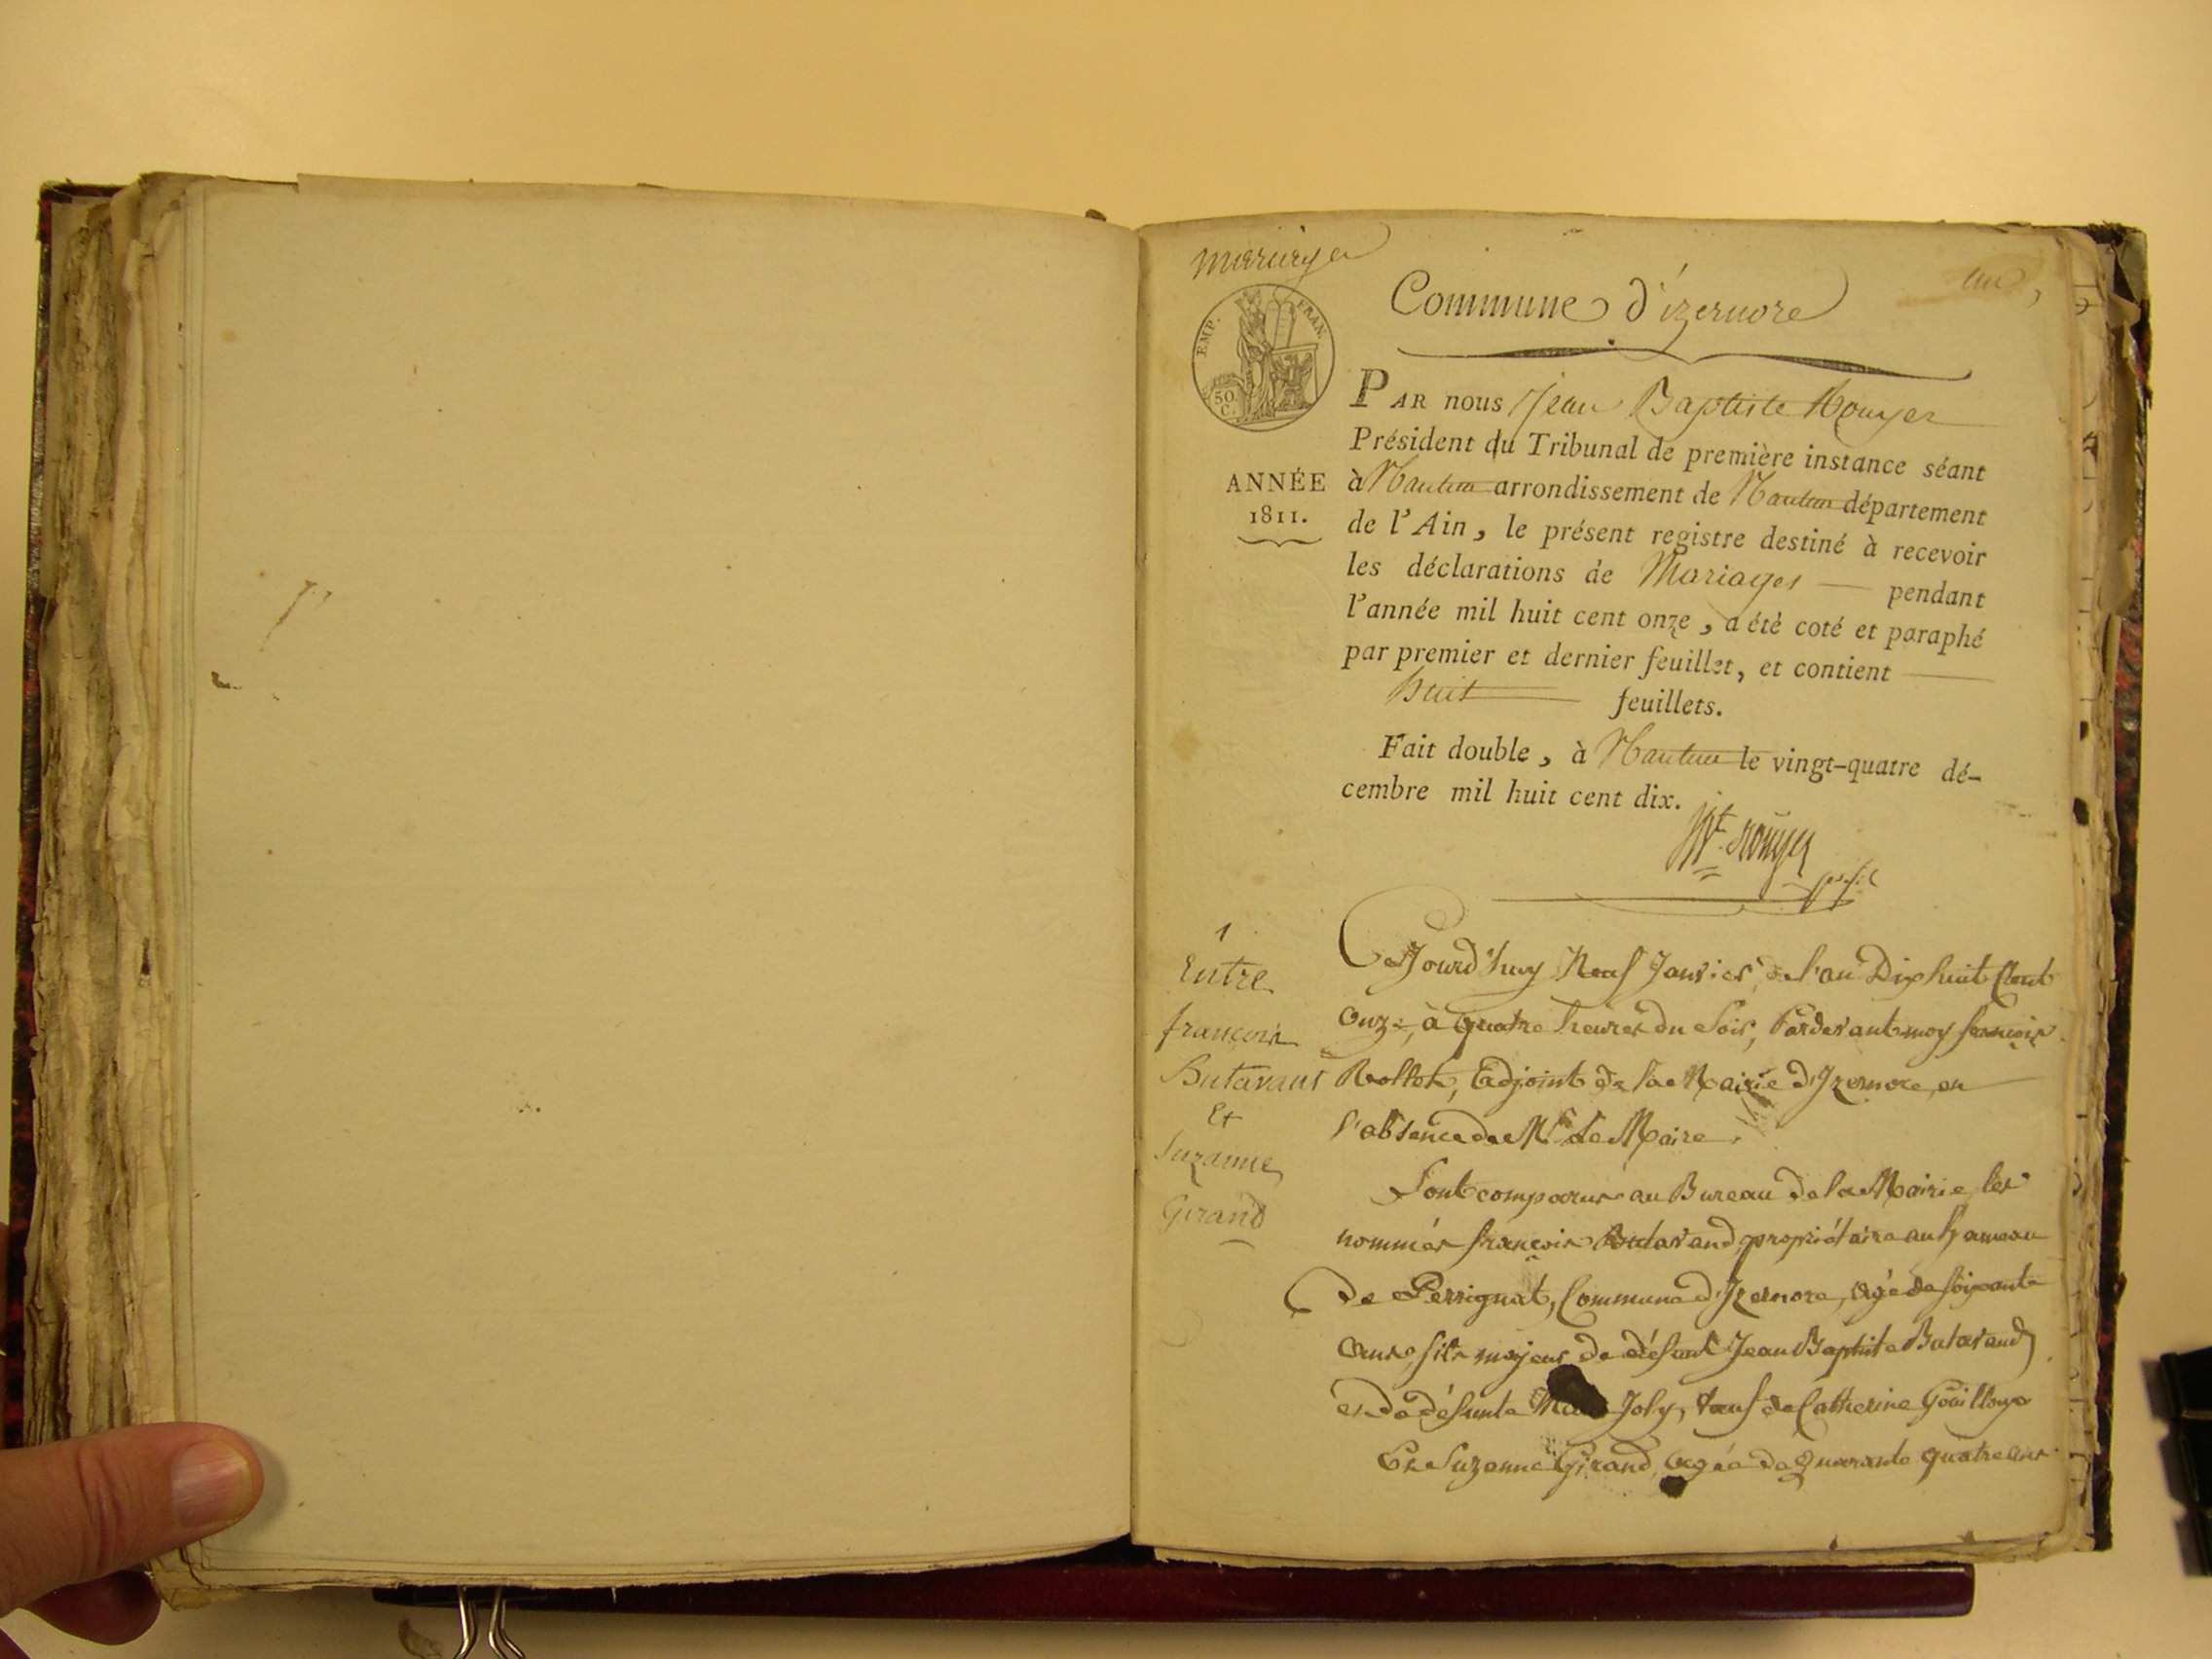 mariages
Commune d'izernore
un,
EMP. FRAN.
50.
C.
PAR nous Jean Baptiste Rouyer
Président du Tribunal de première instance séant
ANNÉE
1811.
à Nantua arrondissement de Nantua département
de l'Ain, le présent registre destiné à recevoir
les déclarations de Mariages pendant
l'année mil huit cent onze, a été coté et paraphé
par premier et dernier feuillet, et contient
huit feuillets.
Fait double, à Nantua le vingt-quatre dé-
cembre mil huit cent dix.
Rouyer
1
Entre
françois
Butavant
Et
Suzanne
Girand
Cejourd'huy Neuf Janvier, de l'an Dix huit Cent
Onze, à quatre heures du Soir, Pardevant moy françois
Rollet, Adjoint de la Mairie d'Izernore, en
l'absence de Mr. Le Maire.
Sont comparus au Bureau de la Mairie, les
nommés françois Butavand, propriétaire au hameau
De Perrignat, Commune d'Izernore, âgé de soixante
ans, fils majeur de défunt Jean Baptiste Butavand
et de défunte Joly, veuf de Catherine
Et Suzanne Girand, âgée de quarante quatre ans